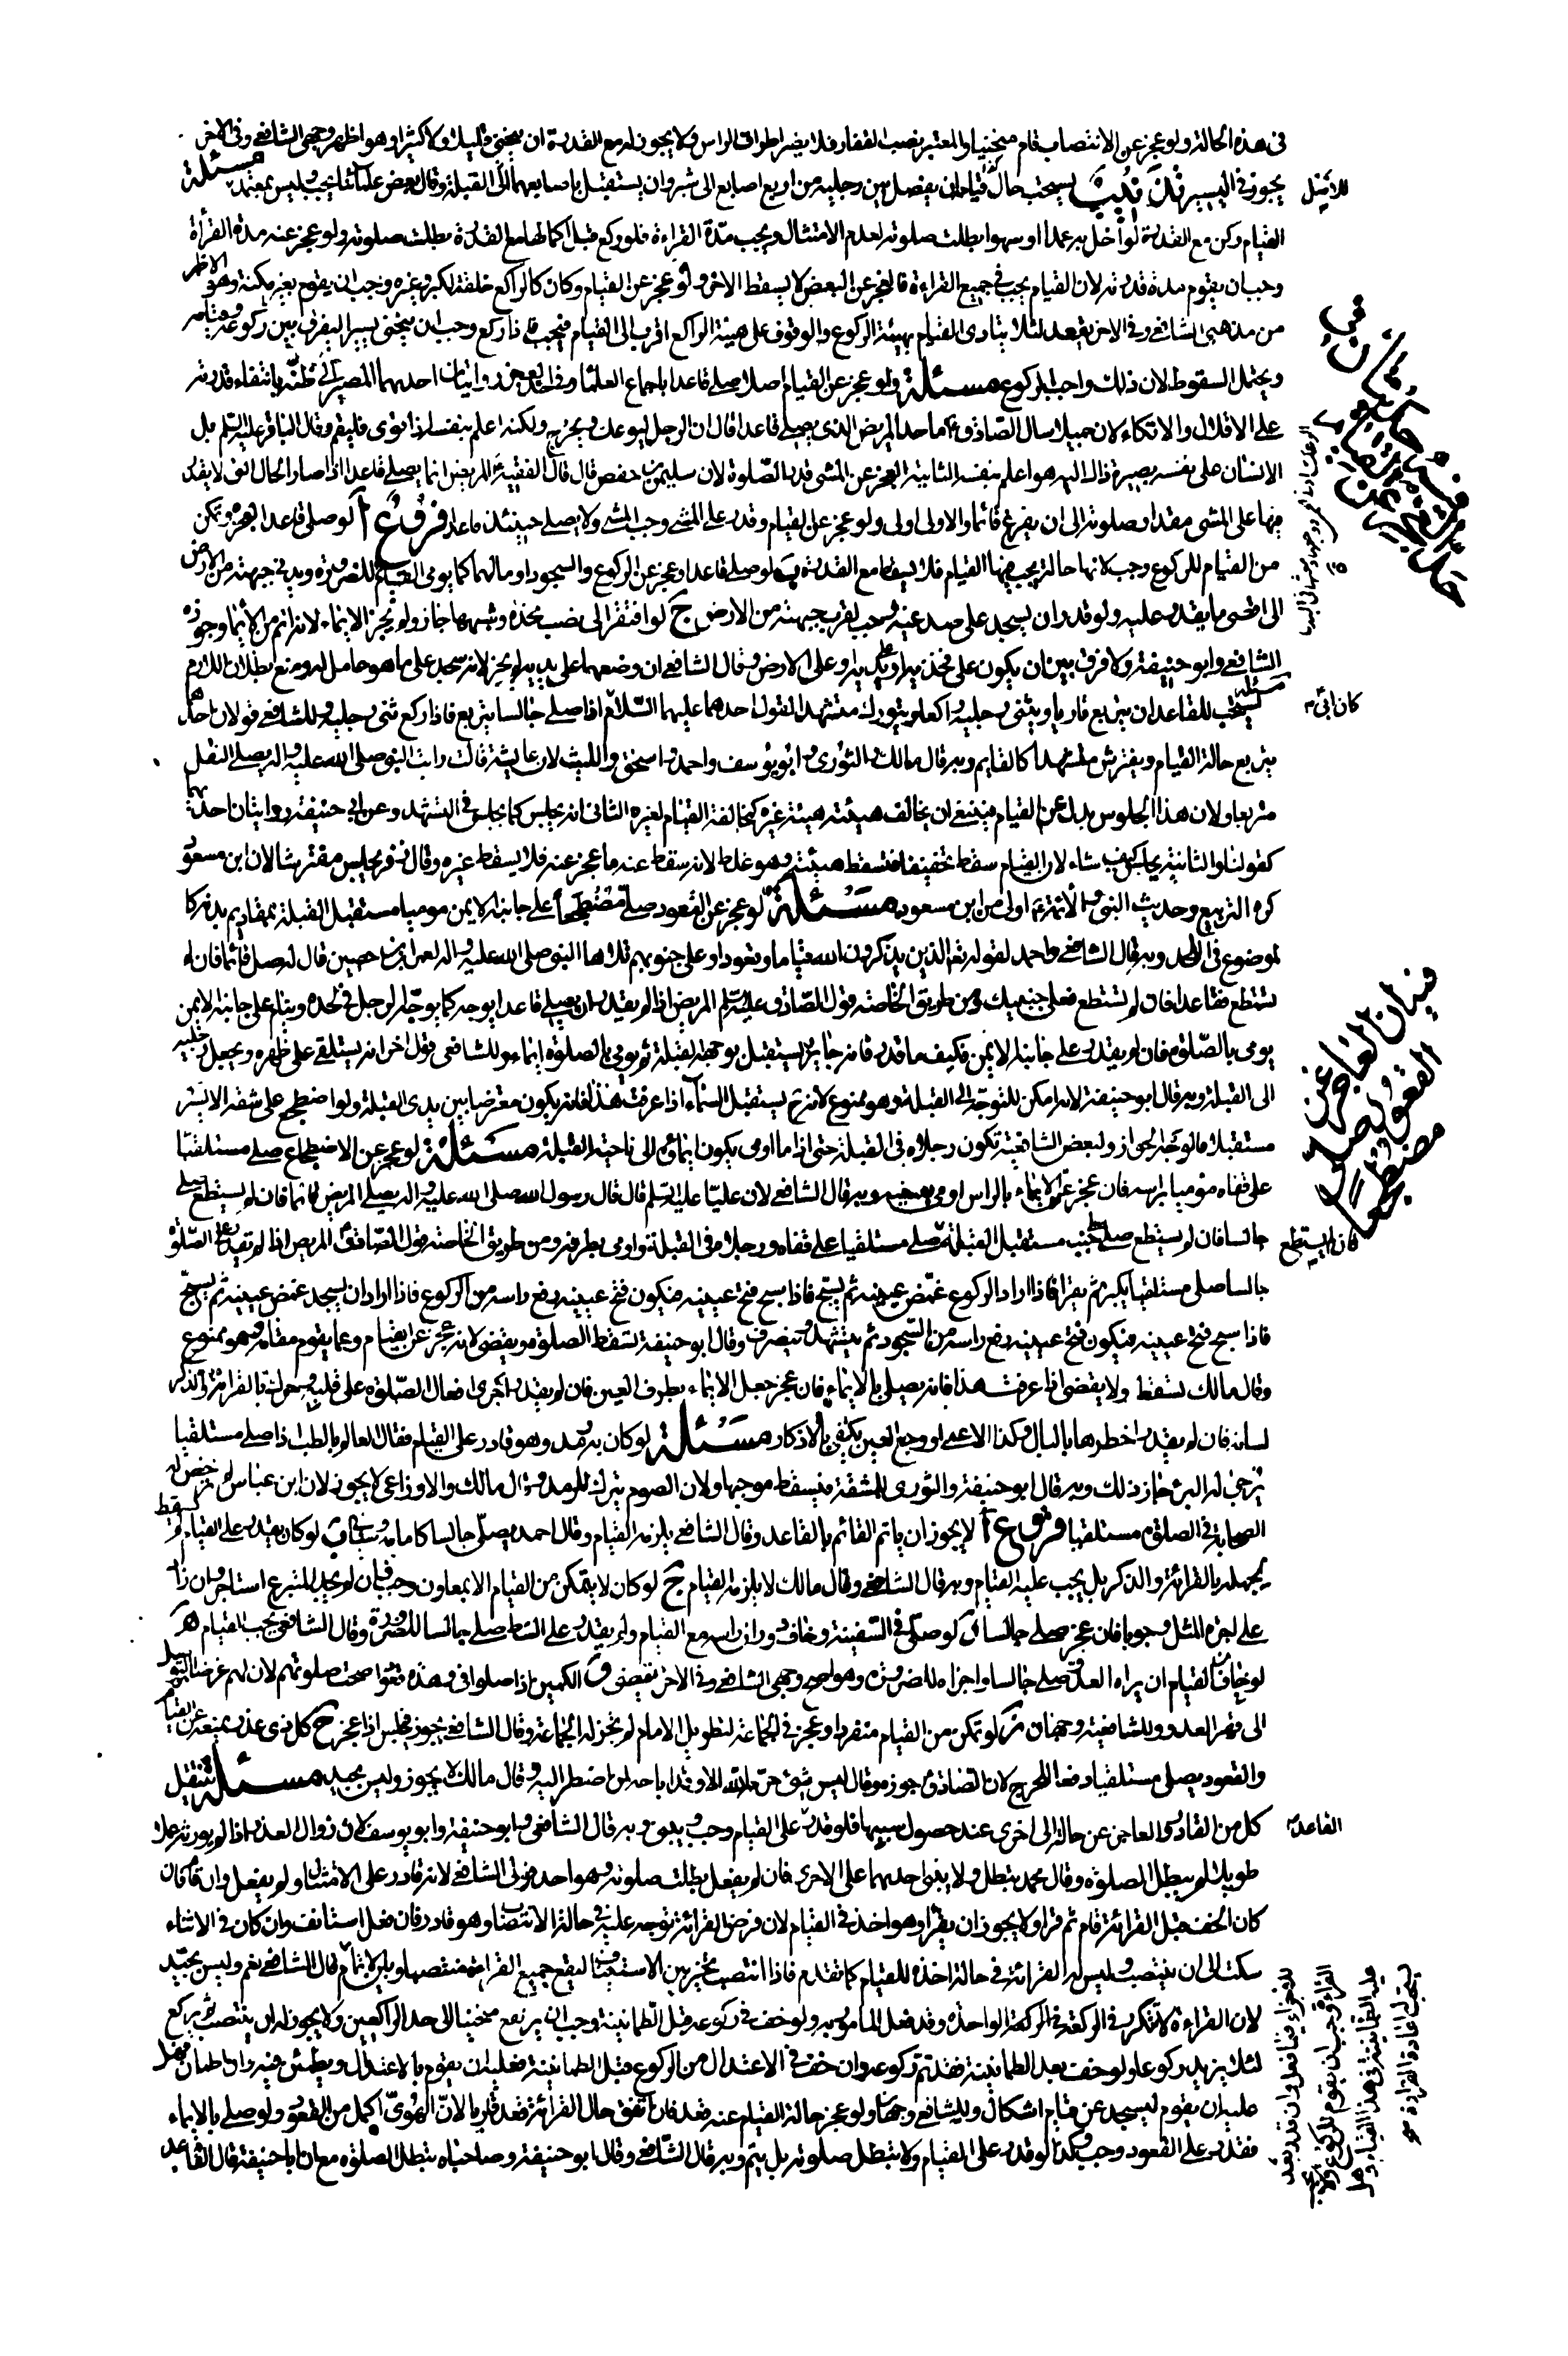 في هذه الحالة ولو عجز عن الانتصاب قام منحنيا والمعتبر نصب الفقار فلا يضر اطراق الراس ولا يجوز له مع القدرة ان ينحنى قليلا ولا كثيرا وهو اظهر وجهى الشافعى وفى الاخر
يجوز فى اليسير تذنيب يستحب حال قيامه ان يفصل بين رجليه من اربع اصابع الى شبر وان يستقبل باصابعهما الى القبلة وقال بعض علمائنا يجب وليس بمعتمد مسئلة
القيام ركن مع القدرة لو اخل به عمدا او سهوا بطلت صلوته لعدم الامتثال ويجب مدة القراءة فلو ركع قبل اكمالها مع القدرة بطلت صلوته ولو عجز عنه مدة القرأة
وجب ان يقوم مدة قدرته لان القيام يجب فى جميع القراءة فالعجز عن البعض لا يسقط الاخر ولو عجز عن القيام وكان كالراكع خلقة لكبر وغيره وجب ان يقوم بغير مكنة وهو الاظهر
من مذهبى الشافعى وفى الاخر يقعد لئلا يتادى القيام بهيئة الركوع والوقوف على هيئة الراكع اقرب الى القيام فيجب فاذا ركع وجب ان ينحنى يسيرا ليفرق بين ركوعه وقيامه
ويحتمل السقوط لان ذلك واجب الركوع مسئلة ولو عجز عن القيام اصلا صلى قاعدا باجماع العلماء وفى حد العجز روايتان احدهما المصير الى ظنه بانتفاء قدرته
على الاقلال والاتكاء لان جميلا سال الصادق ع ما حد المريض الذى يصلى قاعدا قال ان الرجل ليوعك ويحرج ولكنه اعلم بنفسه اذا قوى فليقم وقال الباقر عليه السلم بل
الانسان على نفسه بصيرة ذاك اليه هو اعلم بنفسه الثانية العجز عن المشى قدر الصلوة لان سليمن بن حفص قال قال الفقيه المريض انما يصلى قاعدا اذا صار الحال التى لا يقدر
فيها على المشى مقدار صلوته الى ان يفرغ قائما والاولى اولى ولو عجز عن القيام وقدر على المشى وجب المشى ولا يصلى حينئذ قاعدا فروع ا لو صلى قاعدا لعجزه وتمكن
من القيام للركوع وجب لانها حالة يجب فيها القيام فلا يسقط مع القدرة ب لو صلى قاعدا وعجز عن الركوع والسجود اومأ لهما كما يومى القائم للضرورة ويدنى جبهته من الارض
الى اقصى ما يقدر عليه ولو قدر ان يسجد على صدغيه وجب لقرب جبهته من الارض ج لو افتقر الى نصب مخدة وشبهها جاز ولم يجز الايماء لانه اتم من الايماء وجوزه
الشافعى وابو حنيفة ولا فرق بين ان يكون على فخذيه او يديه او على الارض وقال الشافعى ان وضعهما على يديه لم يجز لانه سجد على ما هو حامل له ونمنع بطلان اللازم
مسئلة يستحب للقاعد ان يتربع قاريا ويثنى رجليه راكعا ويتورك متشهدا لقول احدهما عليهما السلام اذا صلى جالسا تربع فاذا ركع ثنى رجليه وللشافعى قولان احدهما
يتربع حالة القيام ويفترش متشهدا كالقايم وبه قال مالك والثورى وابو يوسف واحمد واسحق والليث لان عايشة قالت رايت النبى صلى الله عليه واله يصلى النفل
متربعا ولان هذا الجلوس بدل عن القيام فينبغى ان يخالف هيئته هيئة غيره كمخالفة القيام لغيره الثانى انه يجلس كما يجلس فى التشهد وعن ابى حنيفة روايتان احدهما
كقولنا والثانية يجلس كيف شاء لان القيام سقط تخفيفا فتسقط هيئته وهو غلط لانه سقط عنه ما عجز عنه فلا يسقط غيره وقال زفر يجلس مفترشا لان ابن مسعود
كره التربيع وحديث النبى والائمة ع اولى من ابن مسعود مسئلة لو عجز عن القعود صلى مضطجعا على جانبه الايمن موميا مستقبل القبلة بمقاديم بدنه كا
لموضوع فى اللحد وبه قال الشافعى واحمد لقوله تعالى الذين يذكرون الله قياما وقعودا وعلى جنوبهم تلاها النبى صلى الله عليه واله لعمران بن حصين قال له صل قائما فان لم
تستطع فقاعدا فان لم تستطع فعلى جنبك ومن طريق الخاصة قول الصادق عليه السلم المريض اذا لم يقدر ان يصلى قاعدا يوجه كما يوجه الرجل فى لحده وينام على جانبه الايمن
يومى بالصلوة فان لم يقدر على جانبه الايمن فكيف ما قدر فانه جايز يستقبل بوجهه القبلة ثم يومى بالصلوة ايماء وللشافعى قول اخر انه يستلقى على ظهره ويجعل رجليه
الى القبلة وبه قال ابو حنيفة لانه امكن للتوجه الى القبلة وهو ممنوع لانه ثم يستقبل السماء اذا عرفت هذا فانه يكون معترضا بين يدى القبلة ولو اضطجع على شقه الايسر
مستقبلا فالوجه الجواز ولبعض الشافعية تكون رجلاه فى القبلة حتى اذا ما اومى يكون ايماؤه الى ناحية القبلة مسئلة لو عجز عن الاضطجاع صلى مستلقيا
على قفاه موميا براسه فان عجز عن الايماء بالراس اومى بعينيه وبه قال الشافعى لان عليا عليه السلم قال قال رسول الله صلى الله عليه واله يصلى المريض قائما فان لم يستطع صلى
جالسا فان لم يستطع صلى على جنب مستقبل القبلة صلى مستلقيا على قفاه ورجلاه فى القبلة واومى بطرفه ومن طريق الخاصة قول الصادق ع المريض اذا لم يقدر على الصلوة
جالسا صلى مستلقيا يكبر ثم يقرا فاذا اراد الركوع غمض عينيه ثم يسبح فاذا سبح فتح عينيه فيكون فتح عينيه رفع راسه من الركوع فاذا اراد ان يسجد غمض عينيه ثم يسبح
فاذا سبح فتح عينيه فيكون فتح عينيه رفع راسه من السجود ثم يتشهد وينصرف وقال ابو حنيفة تسقط الصلوة ويقضى لانه عجز عن القيام وعما يقوم مقامه وهو ممنوع
وقال مالك تسقط ولا يقضى اذا عرفت هذا فانه يصلى بالايماء فان عجز جعل الايماء بطرف العين فان لم يقدر اجرى افعال الصلوة على قلبه وحرك بالقراءة والذكر
لسانه فان لم يقدر اخطرها بالبال وكذا الاعمى او وجع العين يكتفى بالاذكار مسئلة لو كان به رمد وهو قادر على القيام فقال العالم بالطب اذا صلى مستلقيا
رجى له البرء جاز ذلك وبه قال ابو حنيفة والثورى للمشقة فيسقط موجبها ولان الصوم يترك للرمد وقال مالك والاوزاعى لا يجوز لان ابن عباس لم يرخص له
الصحابة فى الصلوة مستلقيا فروع ا لا يجوز ان ياتم القائم بالقاعد وقال الشافعى يلزمه القيام وقال احمد يصلى جالسا كامامه وسياتى ب لو كان يقدر على القيام لم يسقط
لجهله بالقراءة والذكر بل يجب عليه القيام وبه قال الشافعى وقال مالك لا يلزمه القيام ج لو كان لا يتمكن من القيام الا بمعاون وجب فان لم يجد المتبرع استاجر وان زاد
على اجرة المثل وجوبا فان عجز صلى جالسا د لو صلى فى السفينة وخاف دوران راسه مع القيام ولم يقدر على الشط صلى جالسا للضرورة وقال الشافعى يجب القيام ه
لو خاف من القيام ان يراه العدو صلى جالسا واجزاه للضرورة وهو اصح وجهى الشافعى وفى الاخر يقضى و الكمين اذا صلوا فى وهدة قعودا صحت صلوتهم لان لهم غرضا فى التوصل
الى قهر العدو وللشافعية وجهان ز لو تمكن من القيام منفردا وعجز فى الجماعة لتطويل الامام لم تجز له الجماعة وقال الشافعى يجوز فيجلس اذا عجز ح كل ذى عذر يمنعه عن القيام
والقعود يصلى مستلقيا دفعا للحرج لان الصادق ع جوزه وقال ليس شئ حرم الله الا وقد اباحه لمن اضطر اليه وقال مالك لا يجوز وليس بجيد مسئلة ينتقل
كل من القادر والعاجز عن حالة الى اخرى عند حصول سببها فلو قدر على القيام وجب ويبنى وبه قال الشافعى وابو حنيفة وابو يوسف لان زوال العذر اذا لم يورث عملا
طويلا لم يبطل الصلوة وقال محمد تبطل ولا يبنى احديهما على الاخرى فان لم يفعل بطلت صلوته وهو احد قولى الشافعى لانه قادر على الامتثال ولم يفعل وان قام فان
كان الخف قبل القراءة قام ثم قرا ولا يجوز ان يقرا وهو اخذ فى القيام لان فرض القراءة توجه عليه فى حالة الانتصاب وهو قادر فان فعل استانف وان كان فى الاثناء
سكت الى ان ينتصب وليس له القراءة فى حالة اخذه للقيام كما تقدم فاذا انتصب تخير بين الاستيناف ليقع جميع القراءة منتصبا وبين الاتمام قال الشافعى نعم وليس بجيد
لان القراءة لا تتكرر فى الركعة الواحدة وقد فعل المامور به ولو خف فى ركوعه قبل الطمانينة وجب ان يرتفع منحنيا الى حد الراكعين ولا يجوز له ان ينتصب ثم يركع
لئلا يزيد ركوعا ولو خف بعد الطمانينة فقد تم ركوعه وان خف فى الاعتدال من الركوع قبل الطمانينة فعليه ان يقوم بالاعتدال ويطمئن فيه وان اطمان فهل
عليه ان يقوم ليسجد عن قيام اشكال وللشافعى وجهان ولو عجز حالة القيام عنه قعد فان اتفق حال القراءة قعد قاريا لان الهوى اكمل من القعود ولو صلى بالايماء
فقدر على القعود وجب وكذا لو قدر على القيام ولا تبطل صلوته بل يتم وبه قال الشافعى وقال ابو حنيفة وصاحباه تبطل الصلوة مع ان ابا حنيفة قال القاعد
للاصل
كان ابى ع
فى ان العاجز عن
القعود يصلى
مضطجعا
فان لم يستطع
القاعد